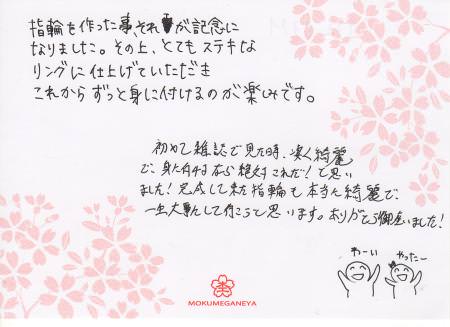 指輪を作った事、それが記念に
なりました。その上、とてもステキな
リングに仕上げていただき
これからずっと身に付けるのが楽しみです。
初めて雑誌で見た時、凄く綺麗
で、身に付けるなら絶対これだ!と思い
ました!完成して来た指輪も本当に綺麗で、
一生大事にして行こうと思います。ありがとう御座いました!
わーい
やったー
MOKUMEGANEYA